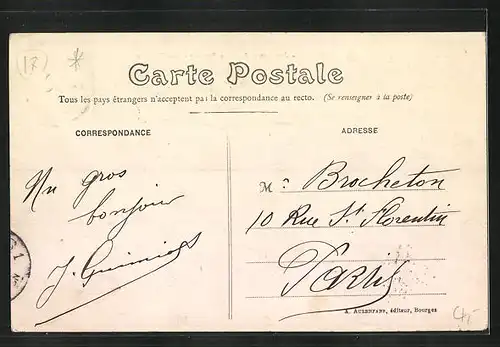 (18)
*
Carte Postale
Tous les pays étrangers n'acceptent pas la correspondance au recto. (Se renseigner à la poste)
CORRESPONDANCE
ADRESSE
Un gros
bonjour
J.
Mr Brocheton
10 Rue St Florentin
Paris
A. AUXENFANS, éditeur, Bourges